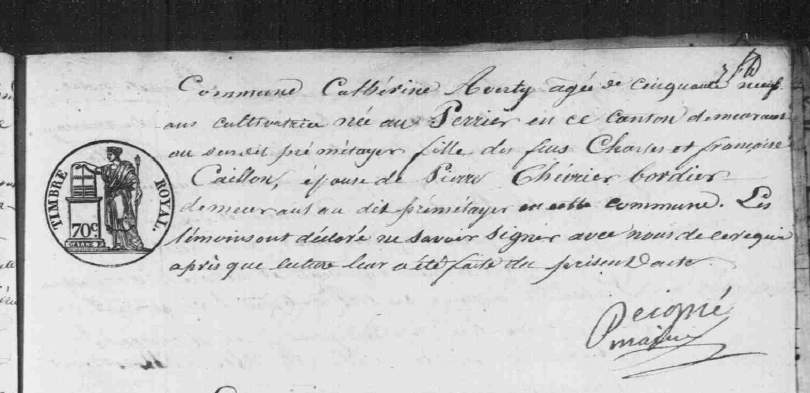 Commune Cathérine Averty agée de cinquante neuf
ans cultivatrice née au Perrier en ce canton demeurant
au susdit pré métayer fille des feus Charles et françoise
Caillon, épouse de Pierre Chévrier bordier
demeurant au dit prémétayer en cette commune. Les
témoins ont déclaré ne savoir signer avec nous de ce requis
après que lecture leur a été faite du présent acte.
TIMBRE ROYAL.
70c
Peigné
maire